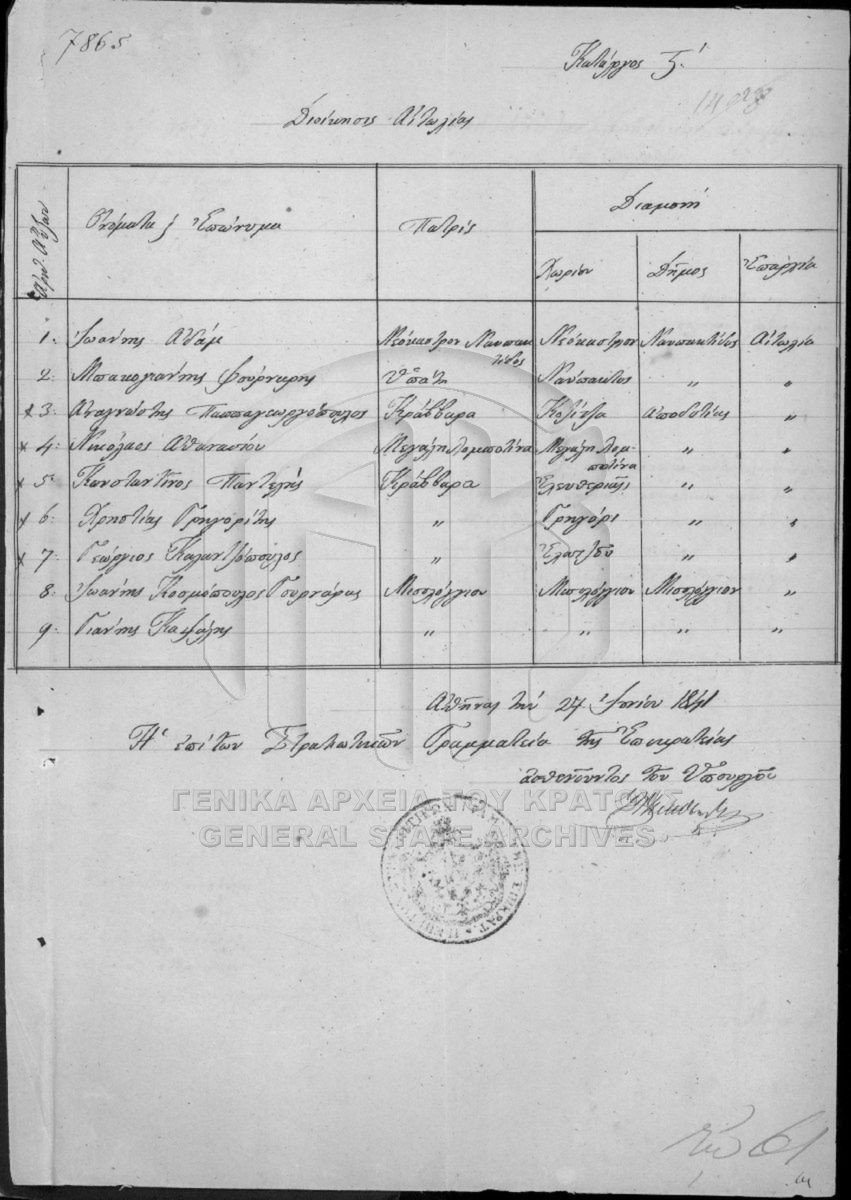 7865
Κατάλογος ζ΄.
Διοίκησις Αἰτωλίας
Ἀριθ. Αὔξων
Ὀνόματα ἢ Ἐπώνυμα
Πατρίς
Διαμονή
Χωρίον Δῆμος Ἐπαρχία
1. Ἰωάννης Ἀδάμ Νεόκαστρον Ναυπακτίδος Νεόκαστρον Ναυπακτίδος Αἰτωλία
2. Μπακογιάννης Φούρκιρης Ὑπάτη Ναύπακτος " "
x 3. Ἀναγνώστης Παππαγεωργόπουλος Κράββαρα Κοζίτζα Ἀποδοτίας "
x 4. Νικόλαος Ἀθανασίου Μεγάλη Λομποτίνα Μεγάλη Λομποτίνα " "
x 5. Κωνσταντῖνος Παντελῆς Κράββαρα Ἐλευθεριάνη " "
x 6. Χρηστίας Γρηγορίτης " Γρηγόρι " "
x 7. Γεώργιος Καλαντζόπουλος " Ἐλατζοῦ " "
8. Ἰωάννης Κοσμόπουλος Γουρνάρας Μισολόγγιον Μισολόγγιον Μισολόγγιον "
9. Γιάννης Καψάλης " " " "
Ἀθῆναι τὴν 27 Ἰουνίου 1841
Ἡ ἐπὶ τῶν Στρατιωτικῶν Γραμματεία τῆς Ἐπικρατείας
ἀσθενοῦντος τοῦ Ὑπουργοῦ
ΓΕΝΙΚΑ ΑΡΧΕΙΑ ΤΟΥ ΚΡΑΤΟΥΣ
GENERAL STATE ARCHIVES
61